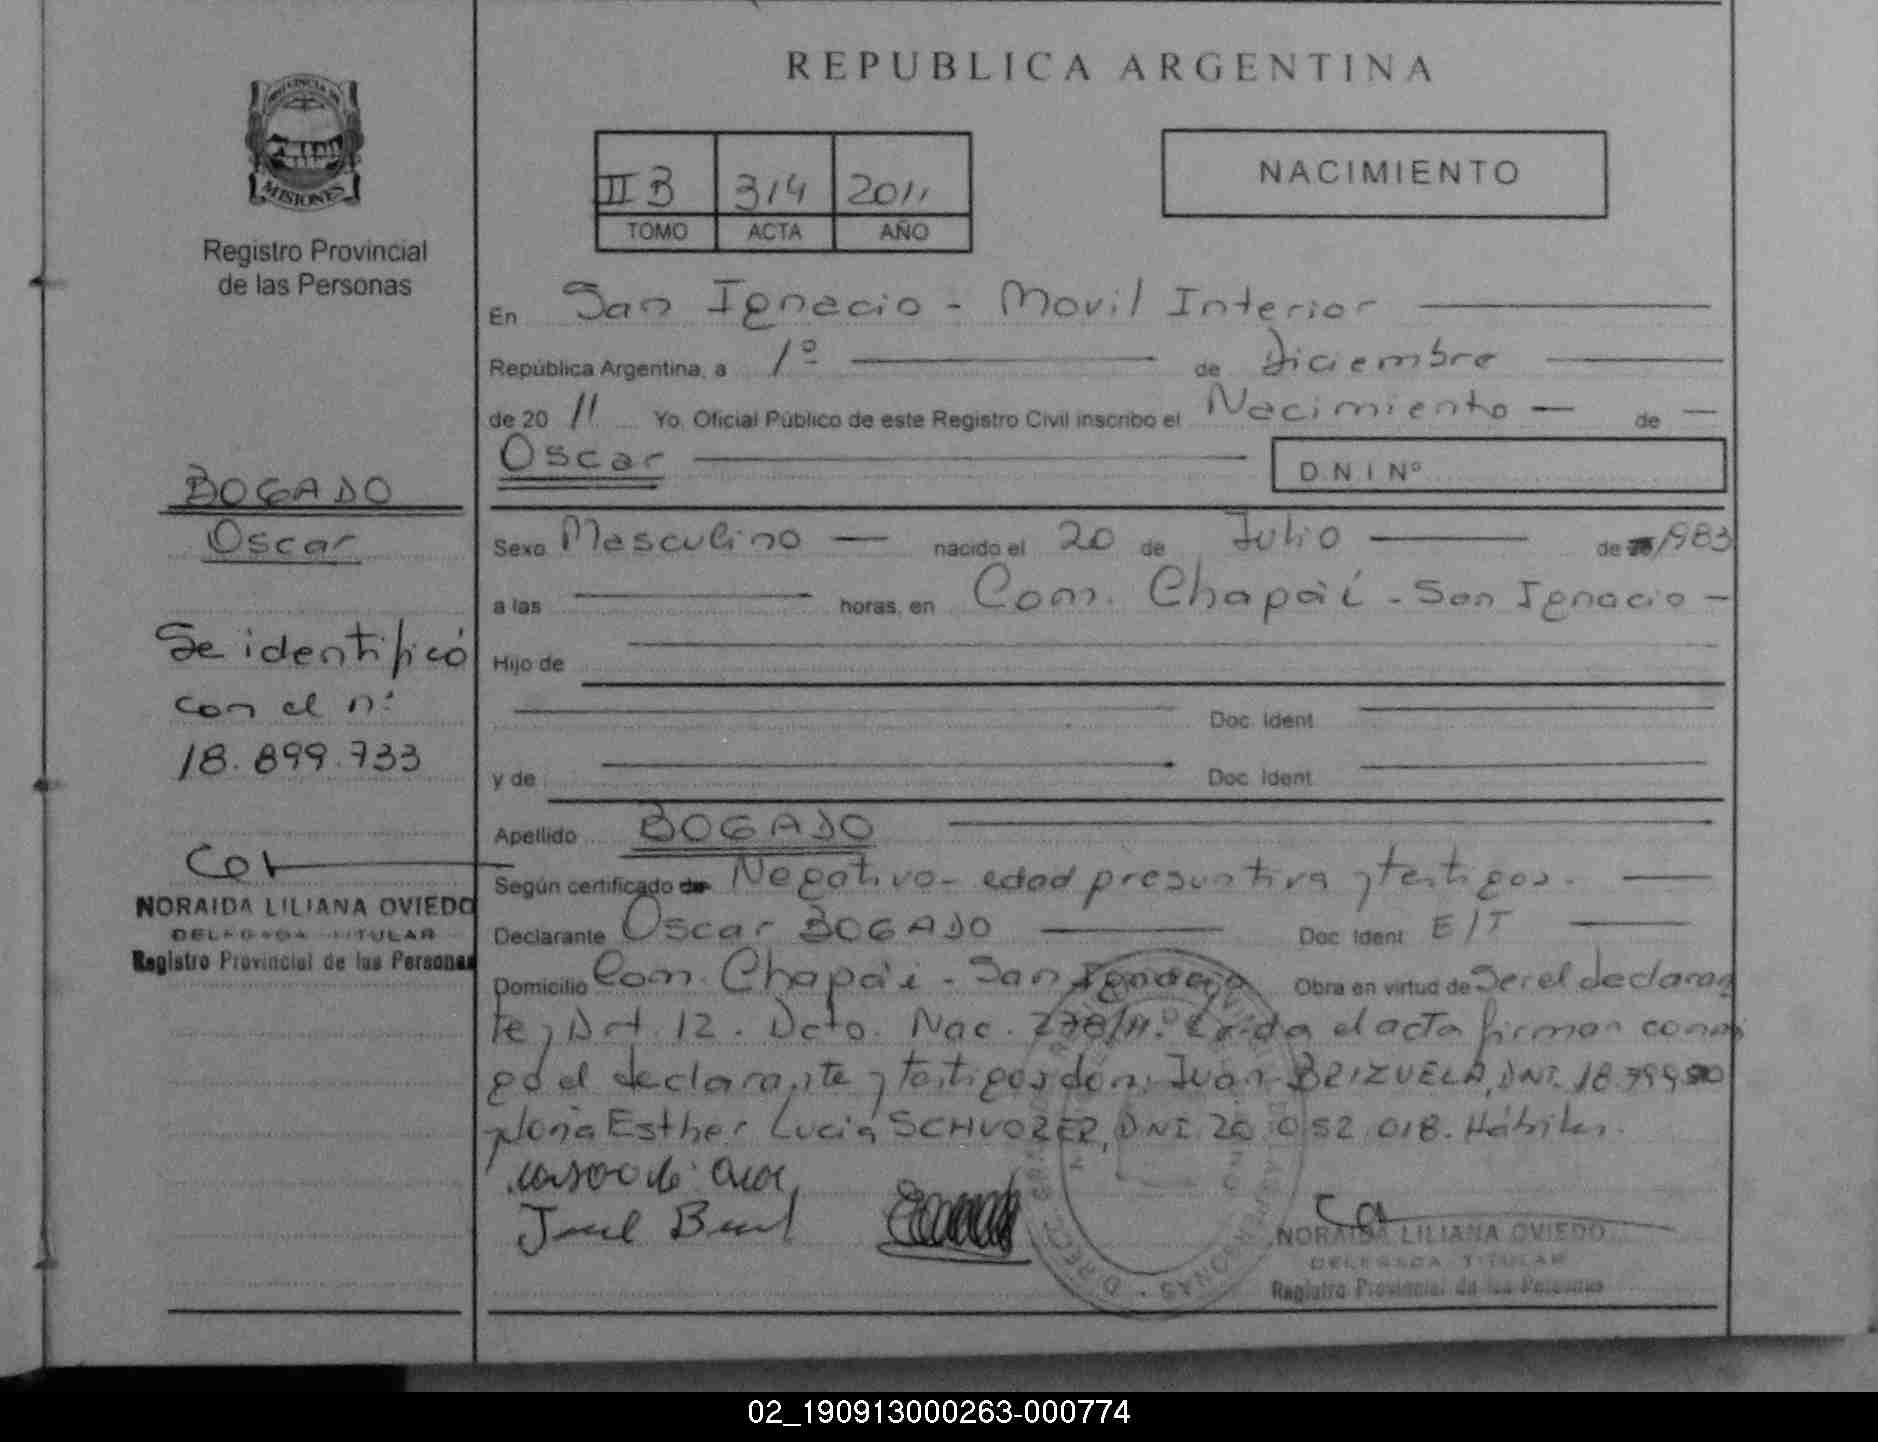 REPUBLICA ARGENTINA
PROVINCIA DE
MISIONES
Registro Provincial
de las Personas
II B 314 2011
TOMO ACTA AÑO
NACIMIENTO
En San Ignacio - Movil Interior
República Argentina, a 1º de Diciembre
de 20 11 Yo, Oficial Público de este Registro Civil inscribo el Nacimiento — de —
Oscar
D.N.I Nº
BOGADO
Oscar
Se identificó
con el nº
18.899.733
NORAIDA LILIANA OVIEDO
DELEGADA TITULAR
Registro Provincial de las Personas
Sexo Masculino — nacido el 20 de Julio — de 1983
a las — horas, en Com. Chapá'í - San Ignacio -
Hijo de
Doc. Ident
y de Doc. Ident
Apellido BOGADO
Según certificado de Negativo - edad presuntiva y testigos.
Declarante Oscar BOGADO — Doc. Ident E/T
Domicilio Com. Chapá'í - San Ignacio Obra en virtud de Ser el declaran
te y Art. 12. Dcto. Nac. 278/11. Leída el acta firman conmi
go el declarante y testigos don: Juan BRIZUELA, DNI.
y doña Esther Lucia SCHVOZER, DNI 20.052.018. Hábiles.
NORAIDA LILIANA OVIEDO
DELEGADA TITULAR
Registro Provincial de las Personas
02_190913000263-000774